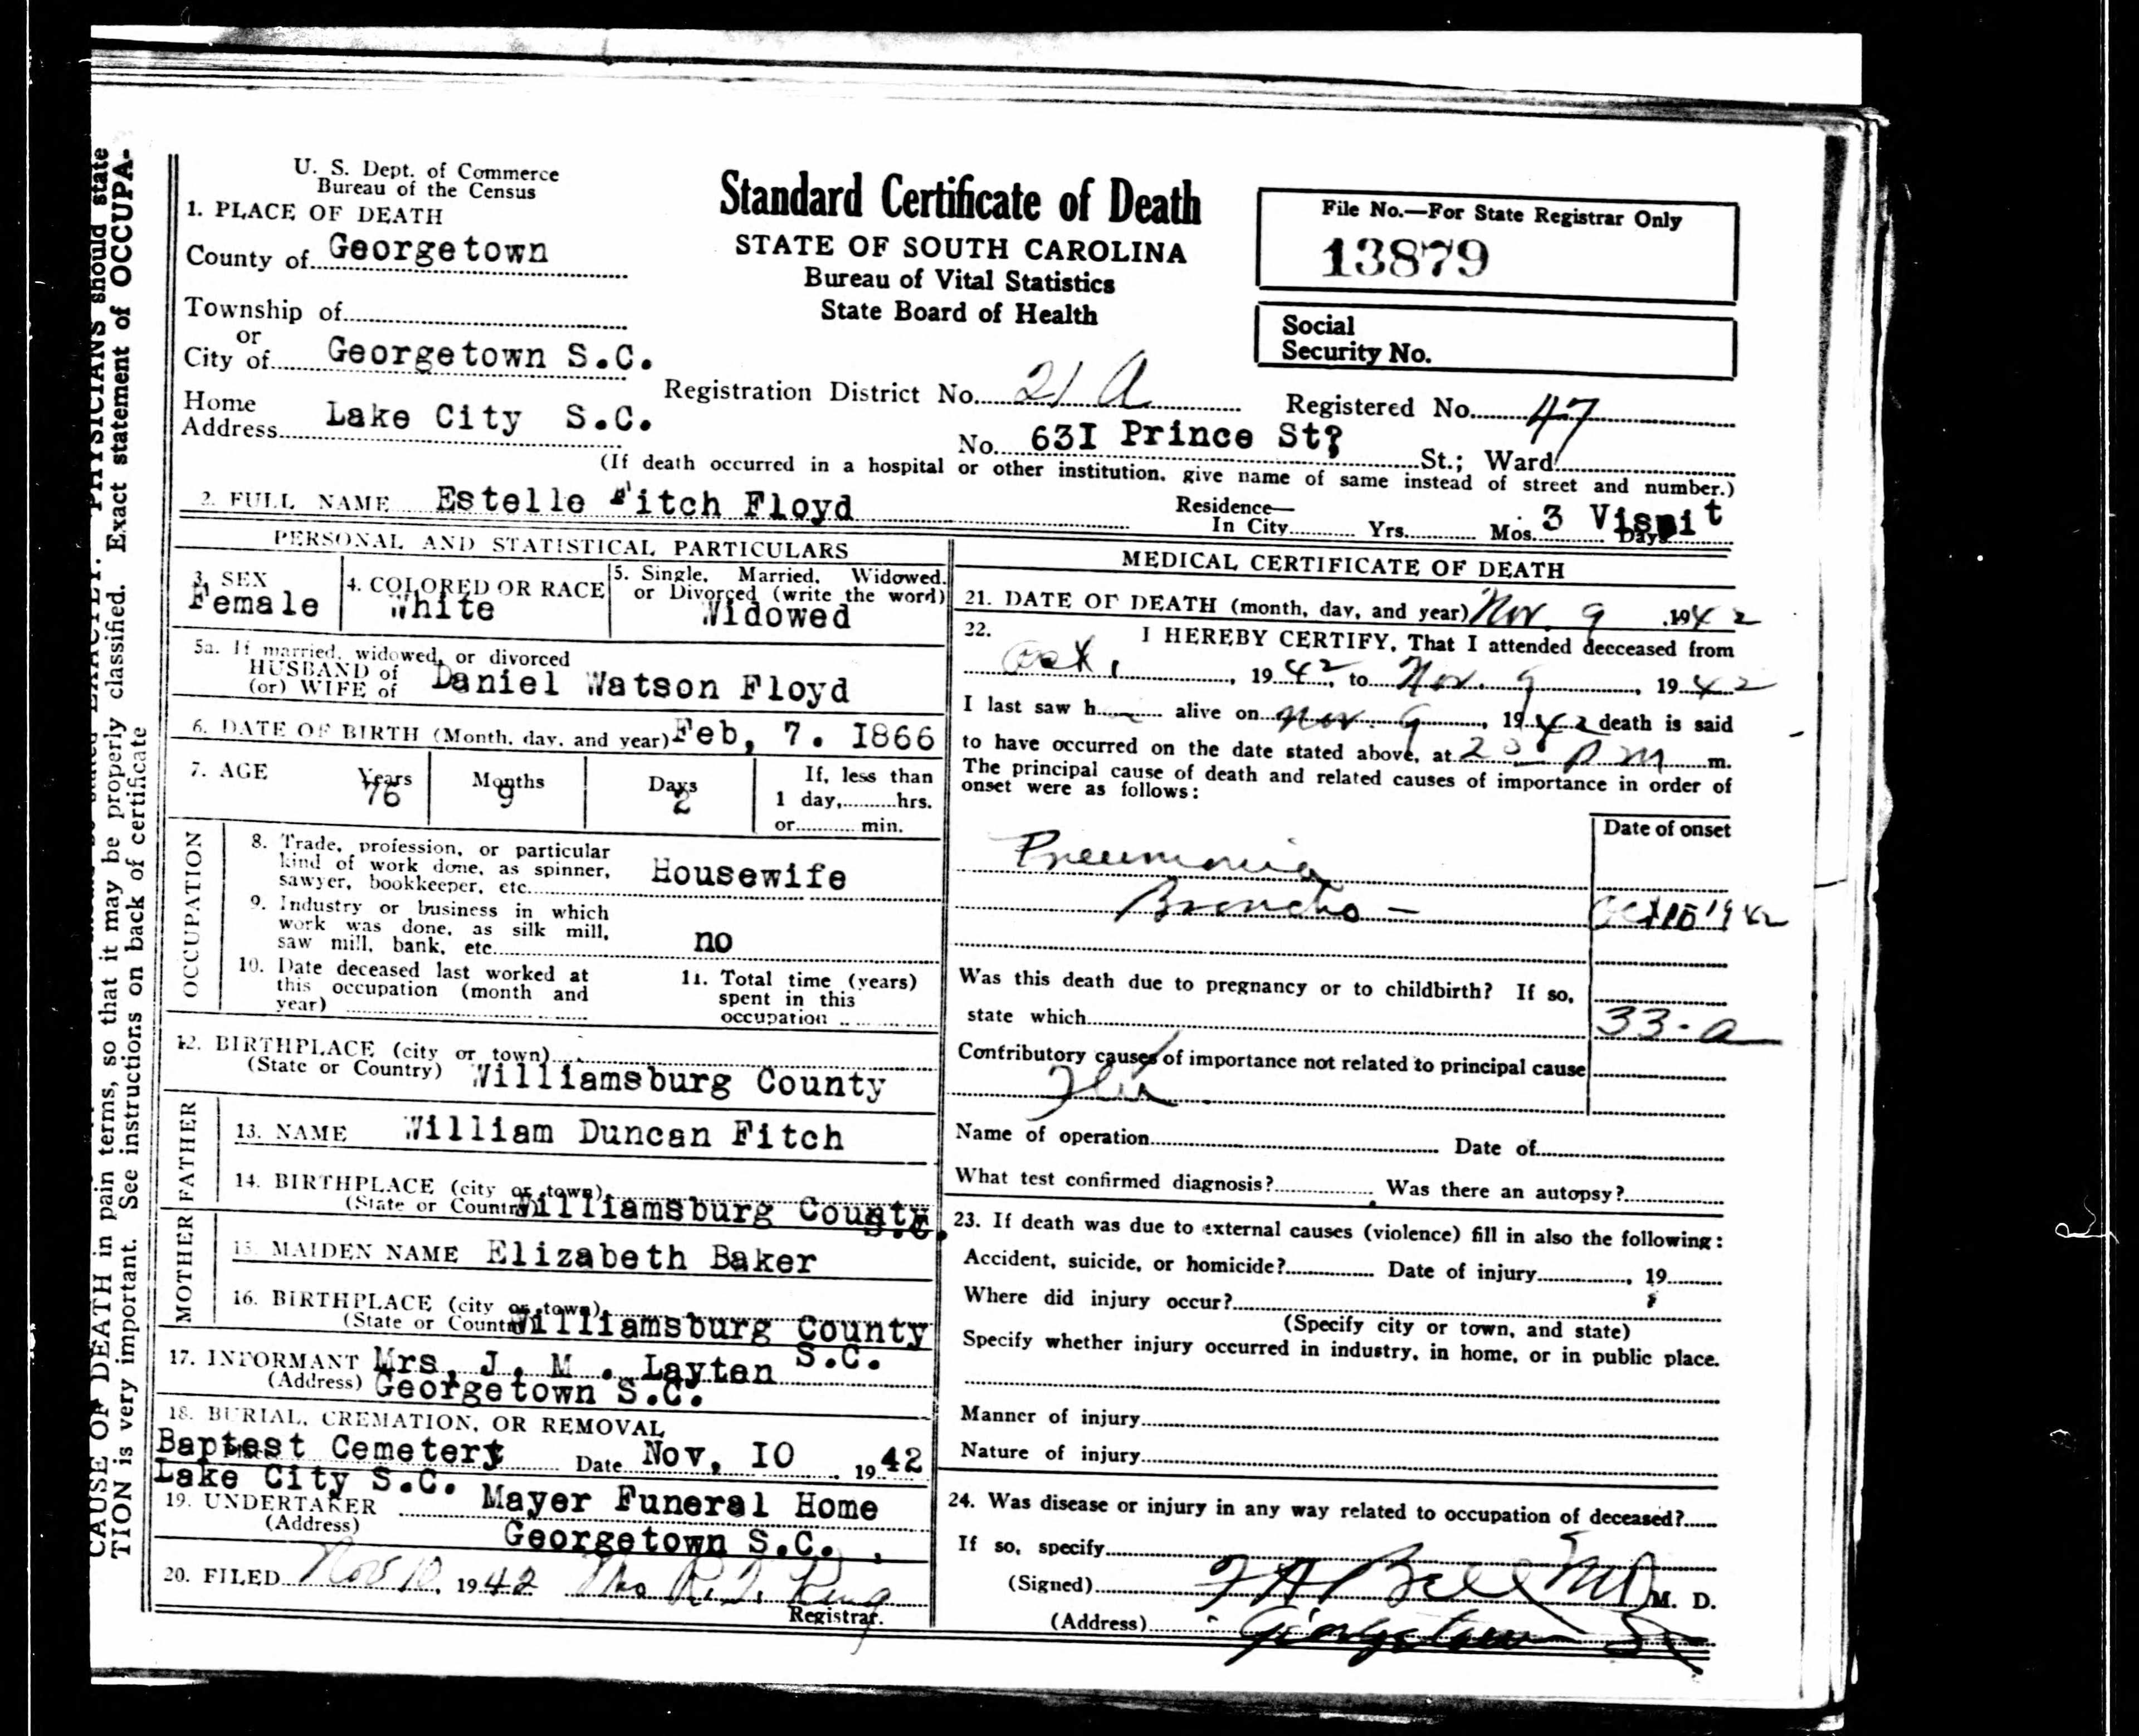 CAUSE OF DEATH in pain terms, so that it may be properly classified. Exact statement of OCCUPA-
TION is very important. See instructions on back of certificate
PHYSICIANS should state
U. S. Dept. of Commerce
Bureau of the Census
1. PLACE OF DEATH
County of Georgetown
Township of
or
City of Georgetown S.C.
Home
Address Lake City S.C.
Standard Certificate of Death
STATE OF SOUTH CAROLINA
Bureau of Vital Statistics
State Board of Health
File No.—For State Registrar Only
13879
Social
Security No.
Registration District No. 21 A Registered No. 47
No. 63I Prince St? St.; Ward
(If death occurred in a hospital or other institution, give name of same instead of street and number.)
2. FULL NAME Estelle Fitch Floyd
Residence—
In City Yrs. Mos. 3 Days
PERSONAL AND STATISTICAL PARTICULARS
3. SEX
Female
4. COLORED OR RACE
White
5. Single, Married, Widowed,
or Divorced (write the word)
Widowed
5a. If married, widowed, or divorced
HUSBAND of
(or) WIFE of Daniel Watson Floyd
6. DATE OF BIRTH (Month, day, and year) Feb, 7. I866
7. AGE
Years
76
Months
9
Days
2
If, less than
1 day, hrs.
or min.
OCCUPATION
8. Trade, profession, or particular
kind of work done, as spinner,
sawyer, bookkeeper, etc. Housewife
9. Industry or business in which
work was done, as silk mill,
saw mill, bank, etc. no
10. Date deceased last worked at
this occupation (month and
year)
11. Total time (years)
spent in this
occupation
12. BIRTHPLACE (city or town)
(State or Country) Williamsburg County
FATHER
13. NAME William Duncan Fitch
14. BIRTHPLACE (city or town)
(State or Country) Williamsburg County
S.C.
MOTHER
15. MAIDEN NAME Elizabeth Baker
16. BIRTHPLACE (city or town)
(State or Country) Williamsburg County
S.C.
17. INFORMANT Mrs, J. M. Layten
(Address) Georgetown S.C.
18. BURIAL, CREMATION, OR REMOVAL
Baptest Cemetery Date Nov, IO 1942
Lake City S.C.
19. UNDERTAKER Mayer Funeral Home
(Address) Georgetown S.C.
20. FILED Nov 10, 1942 Mrs R. J. King
Registrar.
MEDICAL CERTIFICATE OF DEATH
21. DATE OF DEATH (month, day, and year) Nov. 9 1942
22. I HEREBY CERTIFY, That I attended decceased from
Oct, 1942, to Nov. 9, 1942
I last saw h alive on Nov 9, 1942 death is said
to have occurred on the date stated above, at P M m.
The principal cause of death and related causes of importance in order of
onset were as follows:
Date of onset
Pneumonia
Broncho - 1942
Was this death due to pregnancy or to childbirth? If so,
state which 33-a
Contributory causes of importance not related to principal cause
Flu
Name of operation Date of
What test confirmed diagnosis? Was there an autopsy?
23. If death was due to external causes (violence) fill in also the following:
Accident, suicide, or homicide? Date of injury, 19
Where did injury occur?
(Specify city or town, and state)
Specify whether injury occurred in industry, in home, or in public place.
Manner of injury
Nature of injury
24. Was disease or injury in any way related to occupation of deceased?
If so, specify
(Signed) F A Bell MD M. D.
(Address) Georgetown SC